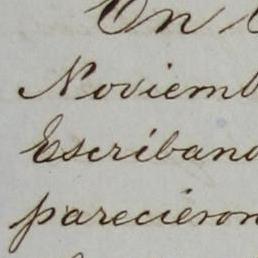 En
Noviemb
Escribano
parecieron